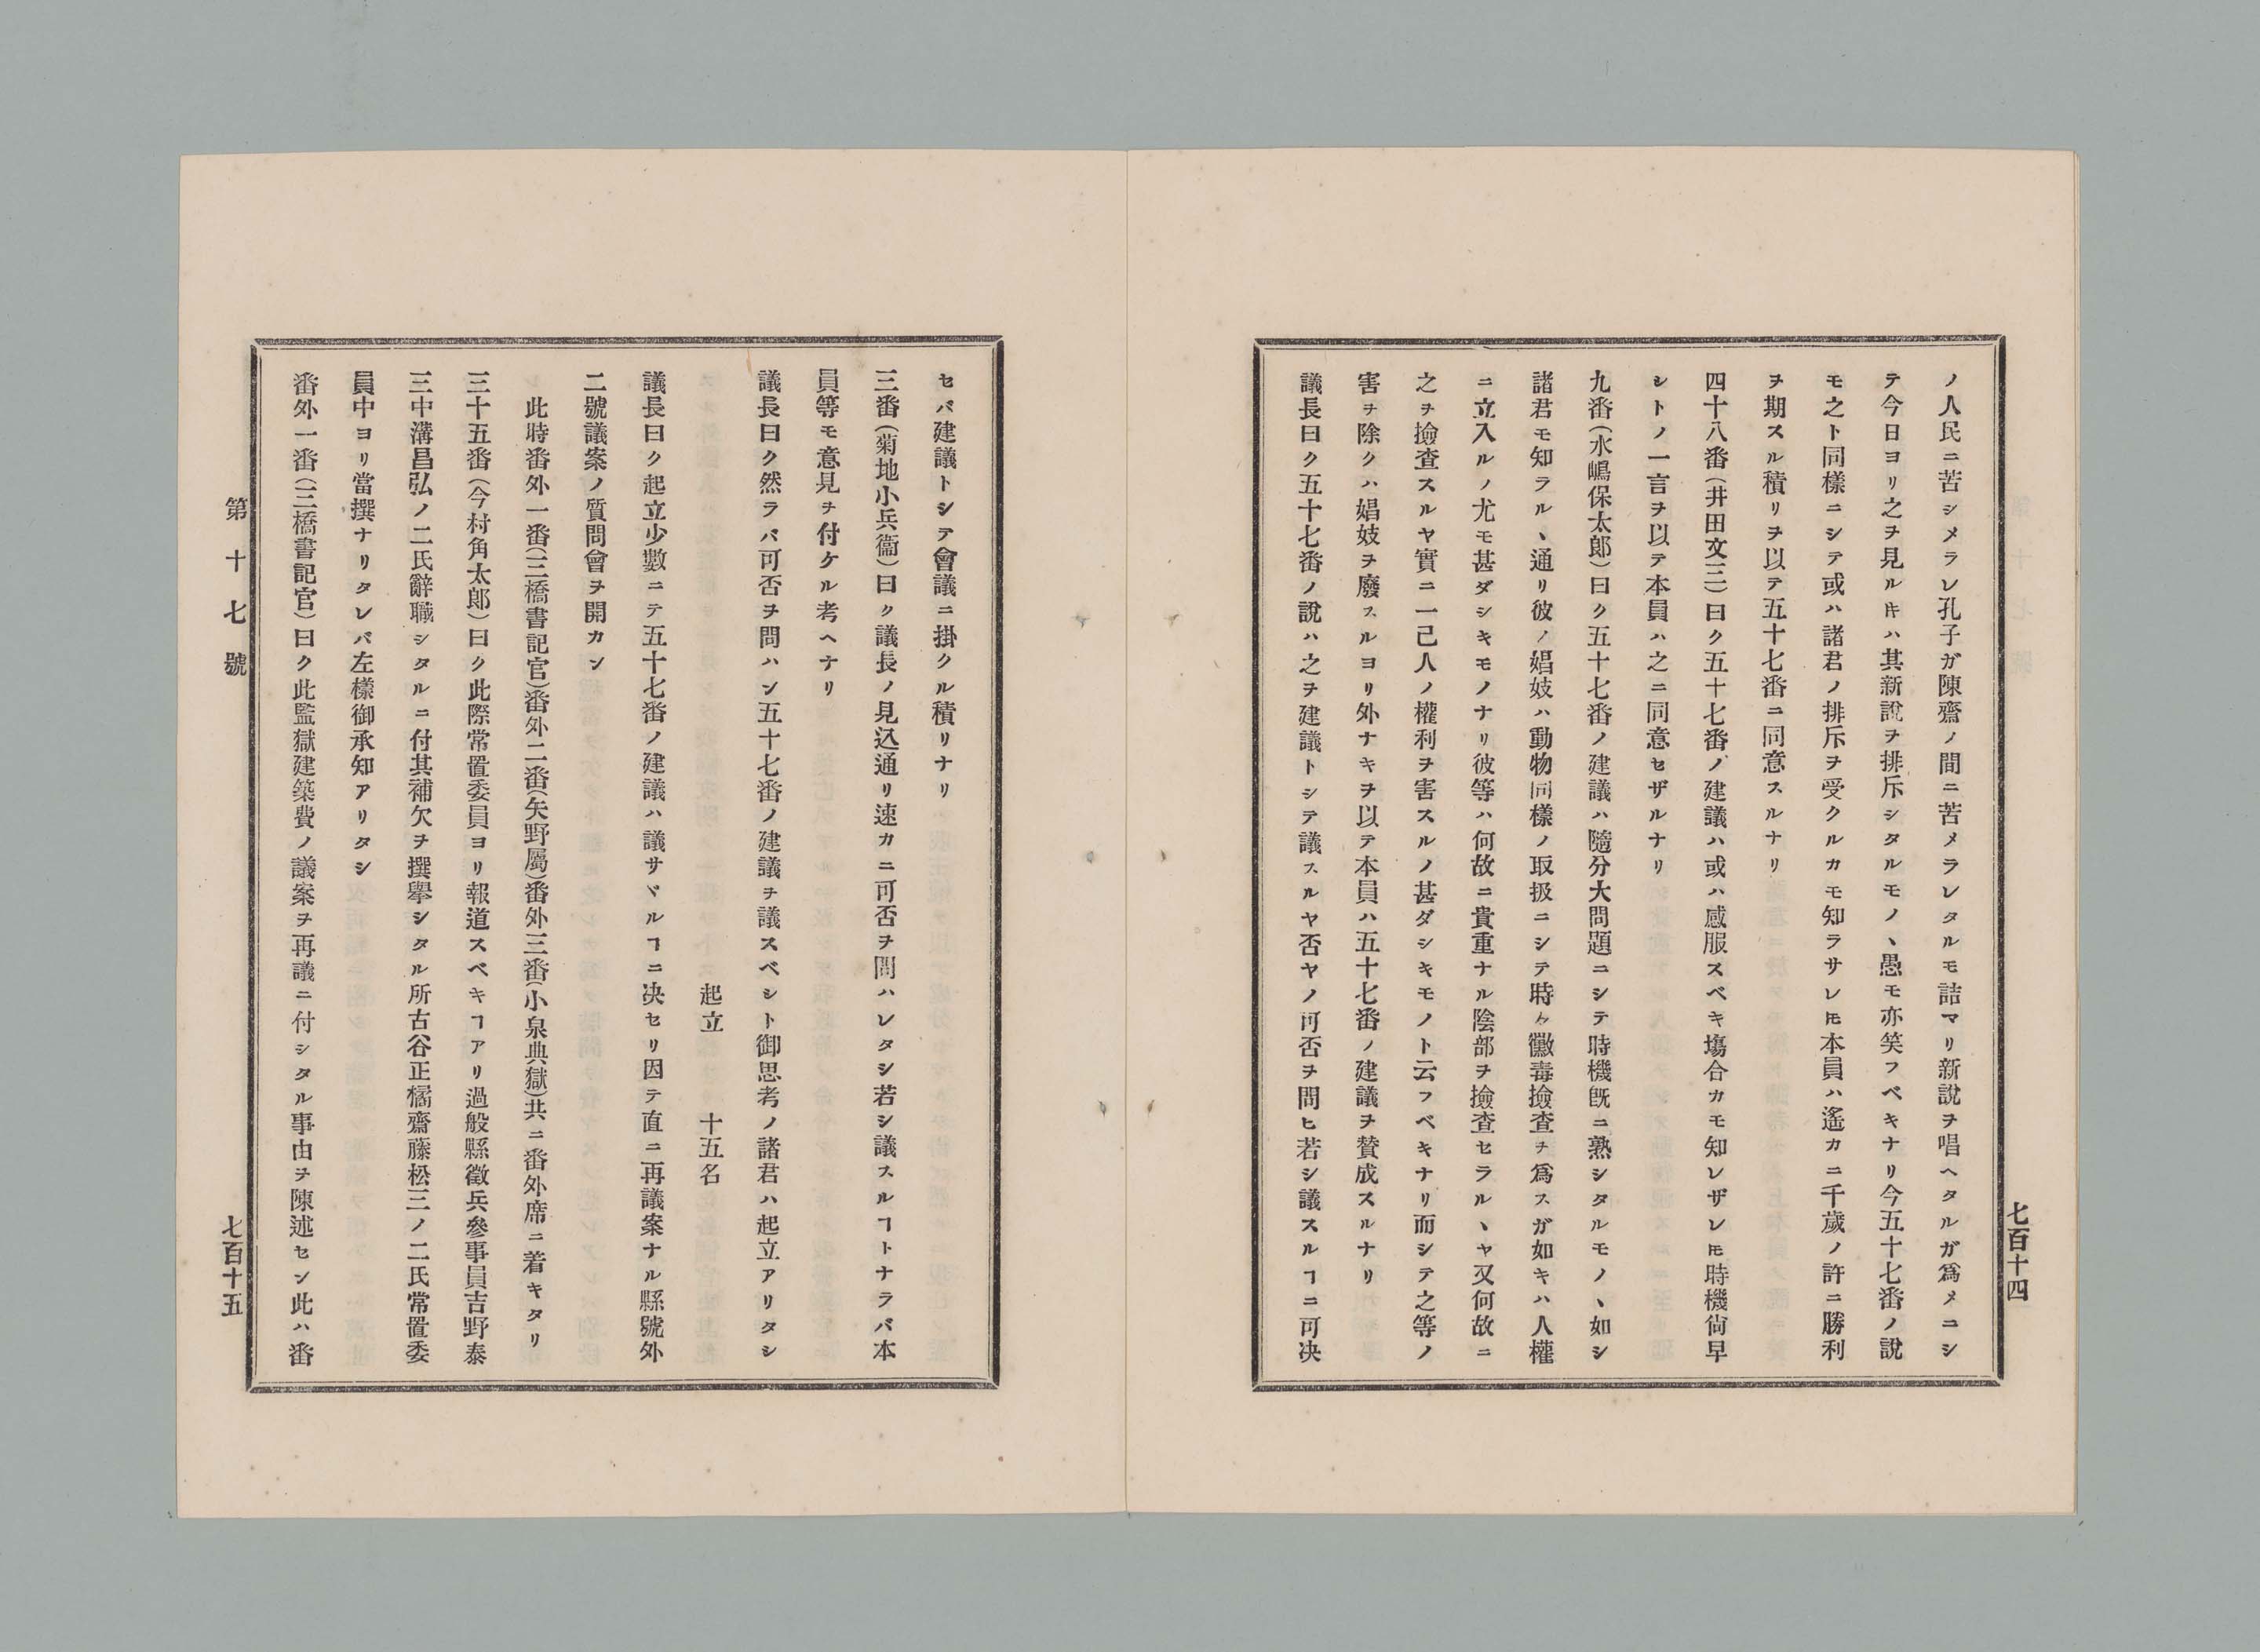 ノ人民ニ苦シメラレ孔子ガ陳齋ノ間ニ苦メラレタルモ詰マリ新說ヲ唱ヘタルガ爲メニシ
テ今日ヨリ之ヲ見ルヰハ其新說ヲ排斥シタルモノヽ愚モ亦笑フベキナリ今五十七番ノ說
モ之ト同樣ニシテ或ハ諸君ノ排斥ヲ受クルカモ知ラサレ𪜈本員ハ遙カニ千歲ノ許ニ勝利
ヲ期スル積リヲ以テ五十七番ニ同意スルナリ
四十八番(井田文三)曰ク五十七番ノ建議ハ或ハ感服スベキ塲合カモ知レザレ𪜈時機尙早
シトノ一言ヲ以テ本員ハ之ニ同意セザルナリ
九番(水嶋保太郞)曰ク五十七番ノ建議ハ隨分大問題ニシテ時機旣ニ熟シタルモノヽ如シ
諸君モ知ラルヽ通リ彼ノ娼妓ハ動物同樣ノ取扱ニシテ時々黴毒撿査ヲ爲スガ如キハ人權
ニ立入ルノ尤モ甚ダシキモノナリ彼等ハ何故ニ貴重ナル陰部ヲ撿査セラルヽヤ又何故ニ
之ヲ撿查スルヤ實ニ一己人ノ權利ヲ害スルノ甚ダシキモノト云フベキナリ而シテ之等ノ
害ヲ除クハ娼妓ヲ廢スルヨリ外ナキヲ以テ本員ハ五十七番ノ建議ヲ賛成スルナリ
議長曰ク五十七番ノ說ハ之ヲ建議トシテ議スルヤ否ヤノ可否ヲ問ヒ若シ議スルヿニ可决
七百十四
セバ建議トシテ會議ニ掛クル積リナリ
三番(菊地小兵衞)曰ク議長ノ見込通リ速カニ可否ヲ問ハレタシ若シ議スルヿトナラバ本
員等モ意見ヲ付ケル考ヘナリ
議長曰ク然ラバ可否ヲ問ハン五十七番ノ建議ヲ議スベシト御思考ノ諸君ハ起立アリタシ
起立　十五名
議長曰ク起立少數ニテ五十七番ノ建議ハ議サヾルヿニ决セリ因テ直ニ再議案ナル縣號外
二號議案ノ質問會ヲ開カン
此時番外一番(三橋書記官)番外二番(矢野屬)番外三番(小泉典獄)共ニ番外席ニ着キタリ
三十五番(今村角太郞)曰ク此際常置委員ヨリ報道スベキヿアリ過般縣徵兵參事員吉野泰
三中溝昌弘ノ二氏辭職シタルニ付其補欠ヲ撰擧シタル所古谷正橘齋藤松三ノ二氏常置委
員中ヨリ當撰ナリタレバ左樣御承知アリタシ
番外一番(三橋書記官)曰ク此監獄建築費ノ議案ヲ再議ニ付シタル事由ヲ陳述セン此ハ番
第十七號
七百十五